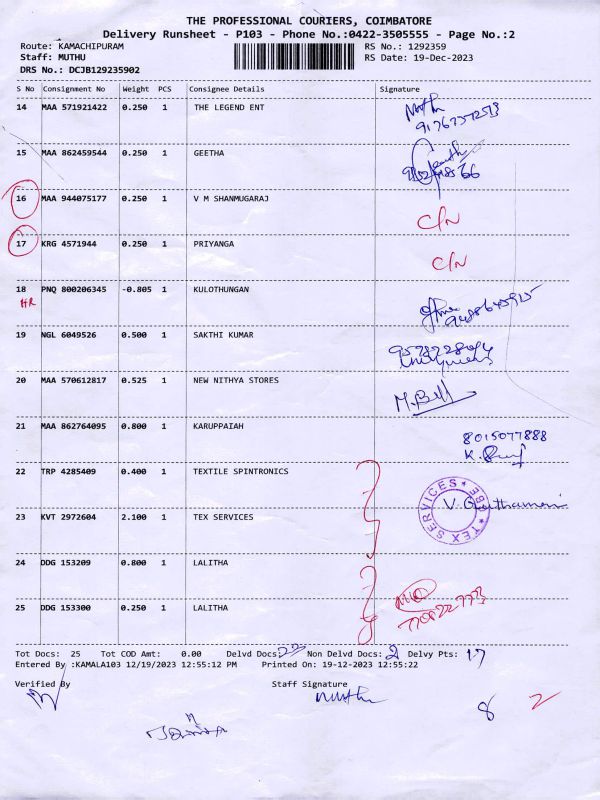 THE PROFESSIONAL COURIERS, COIMBATORE
Delivery Runsheet - P103 - Phone No.:0422-3505555 - Page No.:2
Route: KAMACHIPURAM RS No.: 1292359
Staff: MUTHU RS Date: 19-Dec-2023
DRS No.: DCJB129235902
S No Consignment No Weight PCS Consignee Details Signature
14 MAA 571921422 0.250 1 THE LEGEND ENT
15 MAA 862459544 0.250 1 GEETHA
16 MAA 944075177 0.250 1 V M SHANMUGARAJ C/N
17 KRG 4571944 0.250 1 PRIYANGA C/N
18 PNQ 800206345 -0.805 1 KULOTHUNGAN
HR
19 NGL 6049526 0.500 1 SAKTHI KUMAR
20 MAA 570612817 0.525 1 NEW NITHYA STORES
21 MAA 862764095 0.800 1 KARUPPAIAH 8015077888
22 TRP 4285409 0.400 1 TEXTILE SPINTRONICS
TEX SERVICES * CBE *
23 KVT 2972604 2.100 1 TEX SERVICES
24 DDG 153209 0.800 1 LALITHA
25 DDG 153300 0.250 1 LALITHA
Tot Docs: 25 Tot COD Amt: 0.00 Delvd Docs: Non Delvd Docs: 2 Delvy Pts: 17
Entered By :KAMALA103 12/19/2023 12:55:12 PM Printed On: 19-12-2023 12:55:22
Verified By Staff Signature
Muthu 8 2